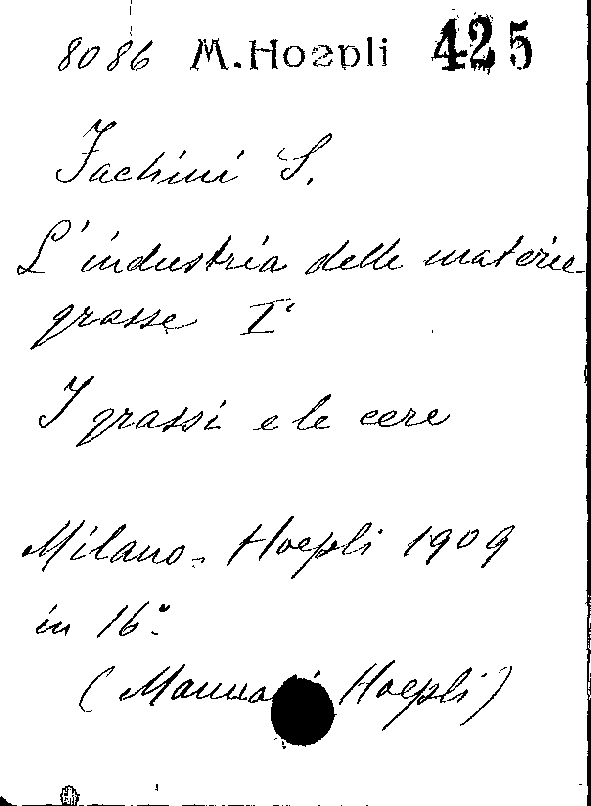 8086 M. Hoepli 425
Fachini S.
L'industria delle materie
grasse I°
I grassi e le cere
Milano - Hoepli 1909
in 16°
(Manuali Hoepli)